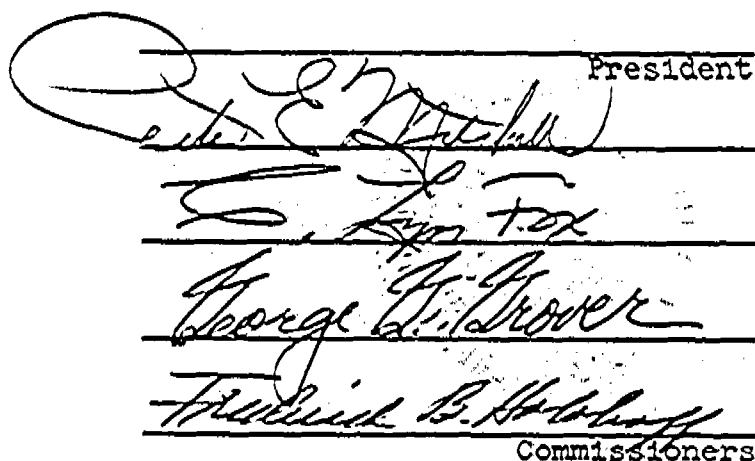 President
Peter E. Mitchell
C. Lyn Fox
George G. Grover
Frederick B. Holoboff
Commissioners